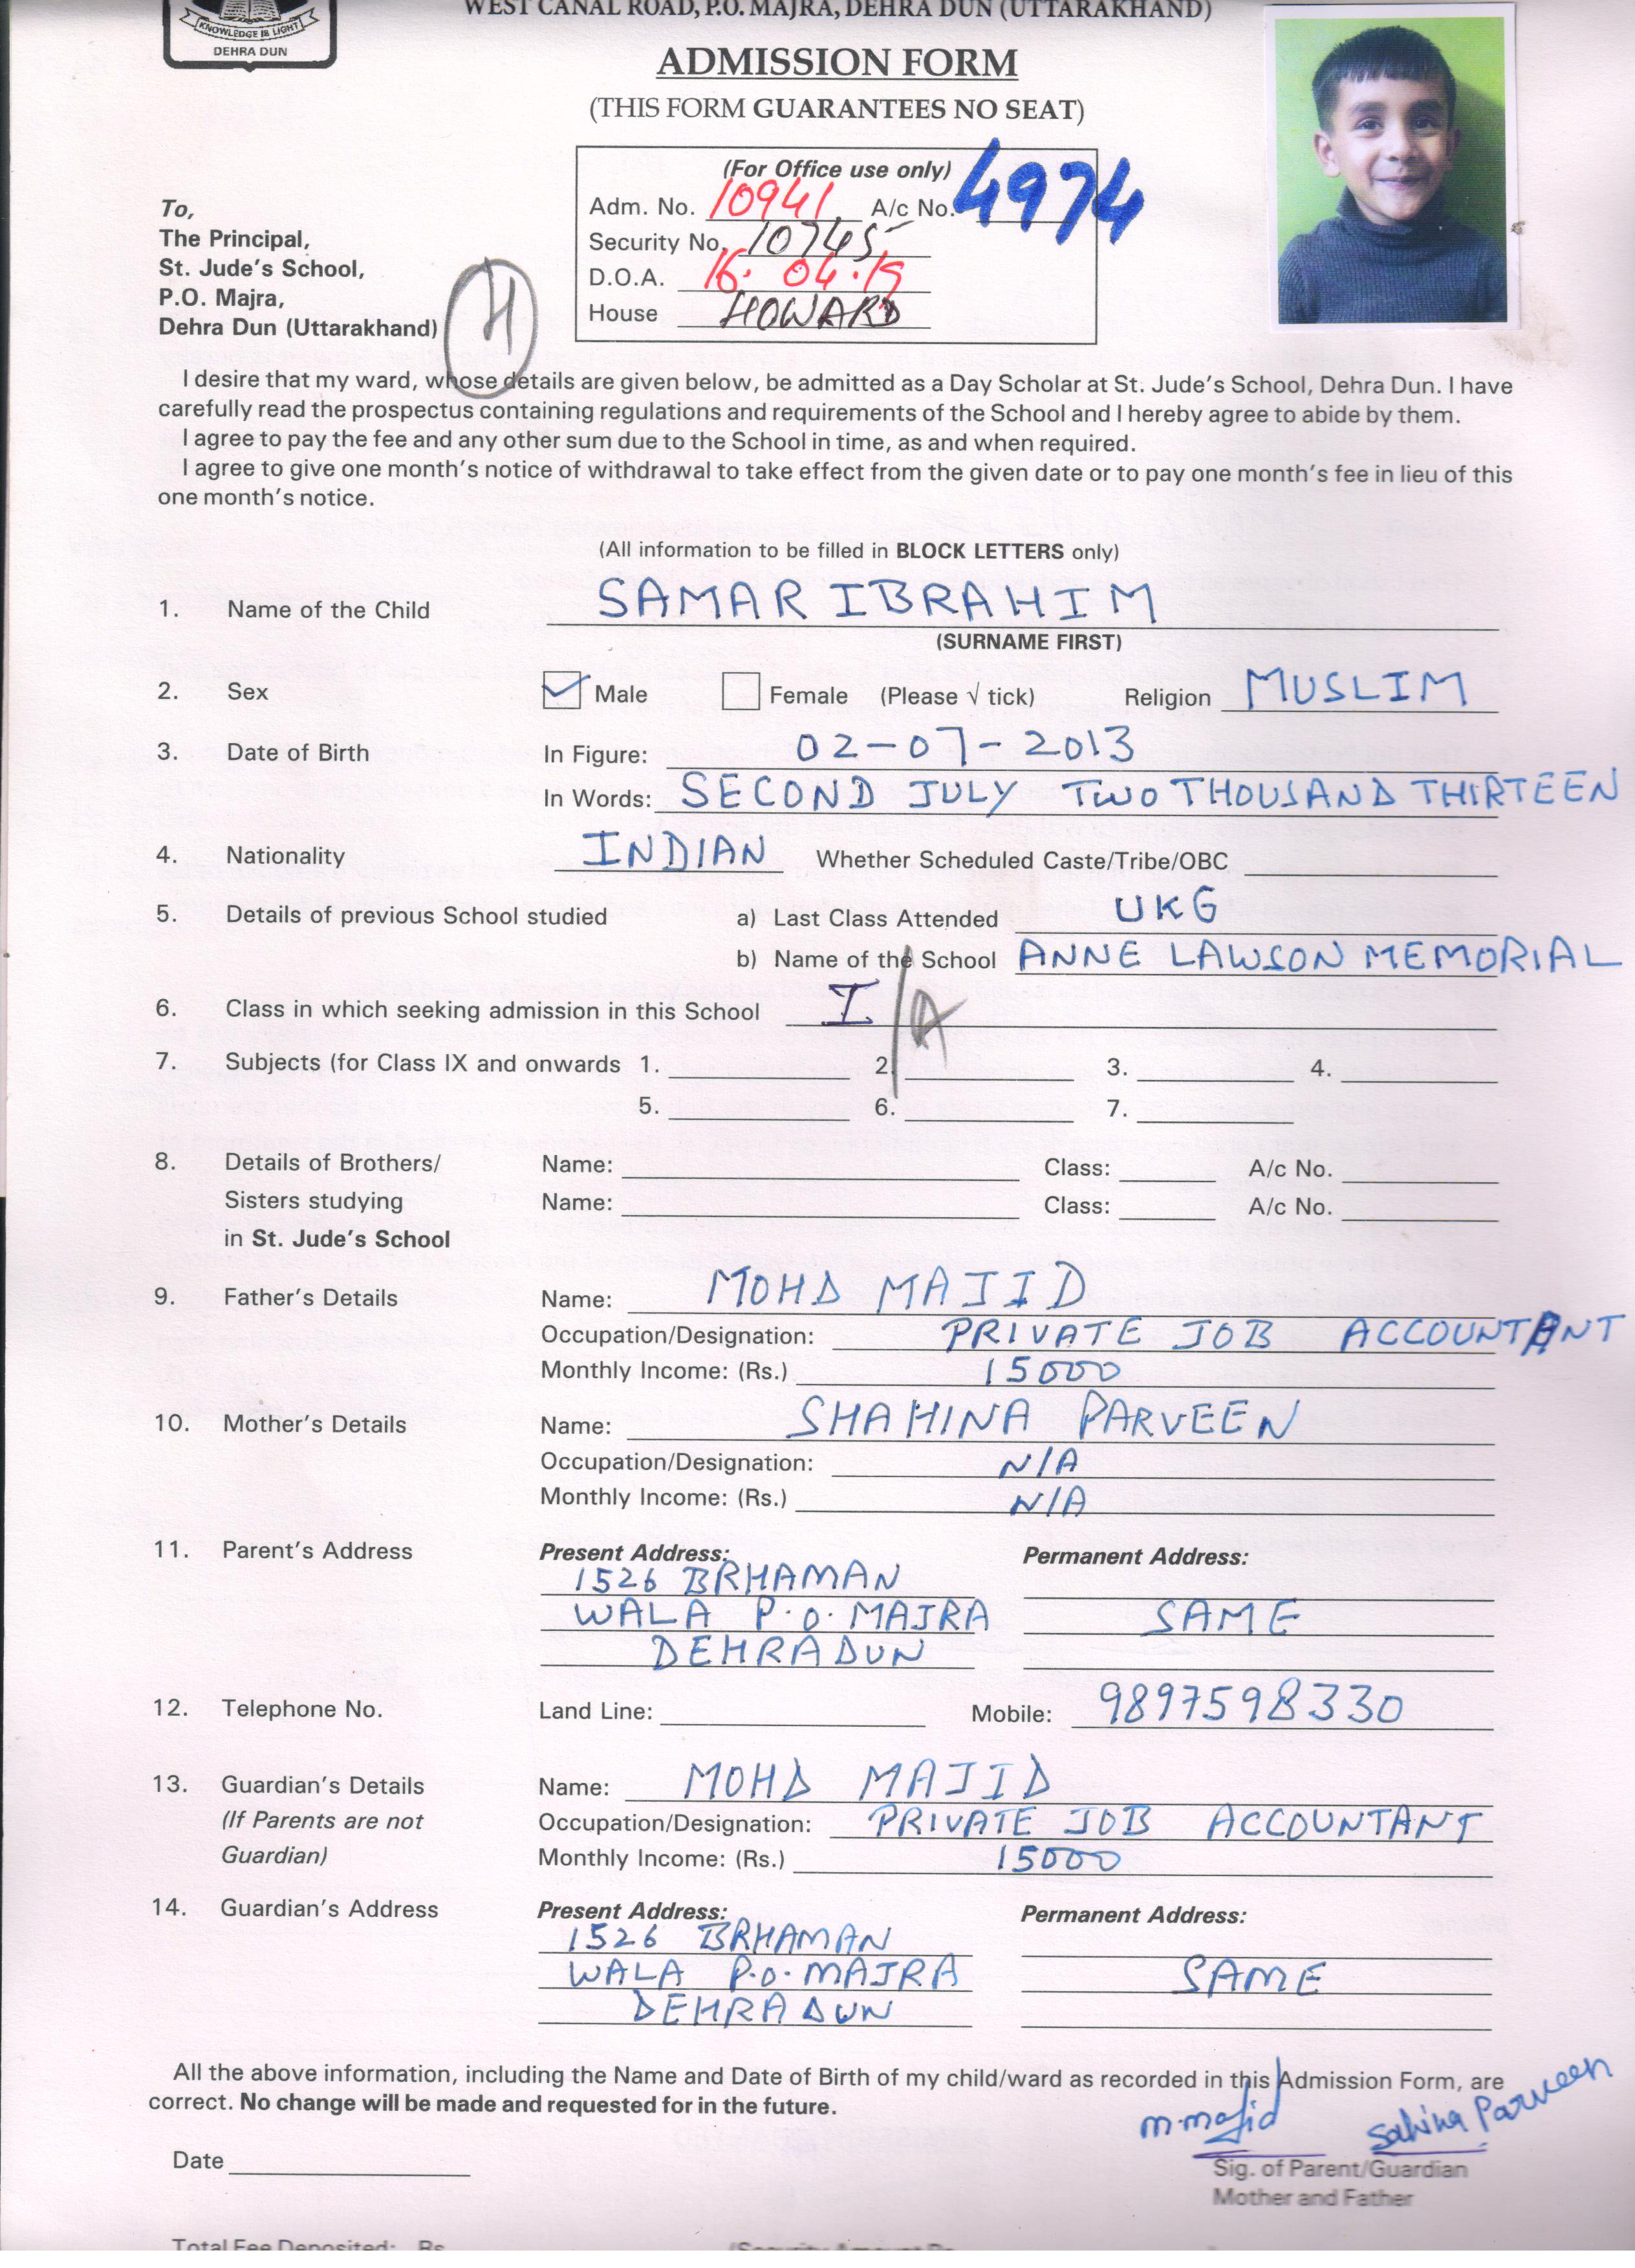 WEST CANAL ROAD, P.O. MAJRA, DEHRA DUN (UTTARAKHAND)
KNOWLEDGE IS LIGHT
DEHRA DUN
ADMISSION FORM
(THIS FORM GUARANTEES NO SEAT)
(For Office use only)
Adm. No. 10941 A/c No. 4974
Security No. 10745
D.O.A. 16.04.19
House HOWARD
To,
The Principal,
St. Jude's School,
P.O. Majra,
Dehra Dun (Uttarakhand)
H
I desire that my ward, whose details are given below, be admitted as a Day Scholar at St. Jude's School, Dehra Dun. I have
carefully read the prospectus containing regulations and requirements of the School and I hereby agree to abide by them.
I agree to pay the fee and any other sum due to the School in time, as and when required.
I agree to give one month's notice of withdrawal to take effect from the given date or to pay one month's fee in lieu of this
one month's notice.
(All information to be filled in BLOCK LETTERS only)
1. Name of the Child SAMAR IBRAHIM
(SURNAME FIRST)
2. Sex Male Female (Please √ tick) Religion MUSLIM
3. Date of Birth In Figure: 02-07-2013
In Words: SECOND JULY TWO THOUSAND THIRTEEN
4. Nationality INDIAN Whether Scheduled Caste/Tribe/OBC
5. Details of previous School studied a) Last Class Attended UKG
b) Name of the School ANNE LAWSON MEMORIAL
6. Class in which seeking admission in this School I/A
7. Subjects (for Class IX and onwards 1. 2. 3. 4.
5. 6. 7.
8. Details of Brothers/ Name: Class: A/c No.
Sisters studying Name: Class: A/c No.
in St. Jude's School
9. Father's Details Name: MOHD MAJID
Occupation/Designation: PRIVATE JOB ACCOUNTANT
Monthly Income: (Rs.) 15000
10. Mother's Details Name: SHAHINA PARVEEN
Occupation/Designation: N/A
Monthly Income: (Rs.) N/A
11. Parent's Address Present Address: Permanent Address:
1526 BRHAMAN
WALA P.O. MAJRA SAME
DEHRADUN
12. Telephone No. Land Line: Mobile: 9897598330
13. Guardian's Details Name: MOHD MAJID
(If Parents are not Occupation/Designation: PRIVATE JOB ACCOUNTANT
Guardian) Monthly Income: (Rs.) 15000
14. Guardian's Address Present Address: Permanent Address:
1526 BRHAMAN
WALA P.O. MAJRA SAME
DEHRADUN
All the above information, including the Name and Date of Birth of my child/ward as recorded in this Admission Form, are
correct. No change will be made and requested for in the future.
m.majid Sahina Parveen
Date
Sig. of Parent/Guardian
Mother and Father
Total Fee Deposited: Rs.